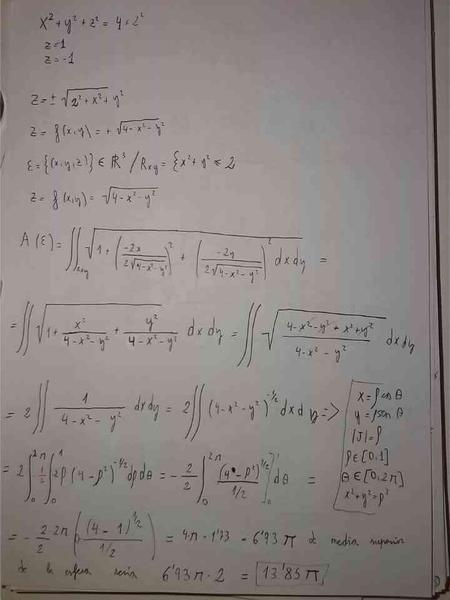 x² + y² + z² = 4 = 2²
z=1
z=-1
z = ± √2² + x² + y²
z = f(x,y) = + √4-x²-y²
ε = {(x,y,z)} ∈ ℝ³ / Rxy = {x² + y² ≤ 2
z = f(x,y) = √4-x²-y²
A(ε) = ∬Rxy √(1 + (-2x / 2√4-x²-y²)² + (-2y / 2√4-x²-y²)²) dxdy =
= ∬ √(1 + x² / 4-x²-y² + y² / 4-x²-y²) dxdy = ∬ √(4-x²-y²+x²+y² / 4-x²-y²) dxdy
= 2 ∬ 1 / 4-x²-y² dxdy = 2 ∬ (4-x²-y²)^-1/2 dxdy =>
x = ρ cos θ
y = ρ sen θ
|J| = ρ
ρ ∈ [0,1]
θ ∈ [0,2π]
x²+y²=ρ²
= 2 ∫₀^2π 1/2 ∫₀^1 2ρ (4-ρ²)^-1/2 dρ dθ = - 2/2 ∫₀^2π [(4-ρ²)^1/2 / 1/2]₀^1 dθ =
= - 2/2 2π ((4-1)^1/2 / 1/2) = 4π · 1'73 = 6'93 π de media
de la esfera sería 6'93π · 2 = 13'85 π